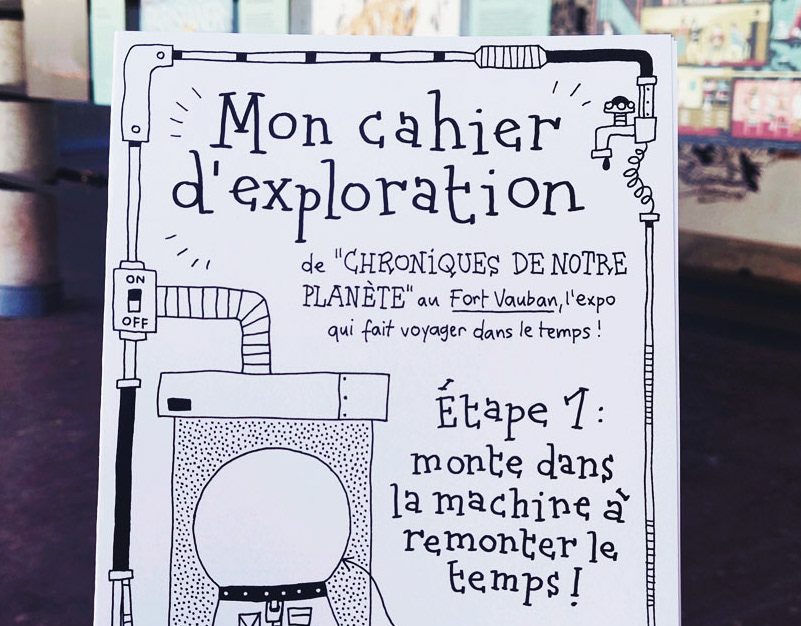 Mon cahier
d'exploration
de "CHRONiQUES DE NOTRE
PLANÈTE" au Fort Vauban, l'expo
qui fait voyager dans le temps !
ON
OFF
Étape 1 :
monte dans
la machine à
remonter le
temps !